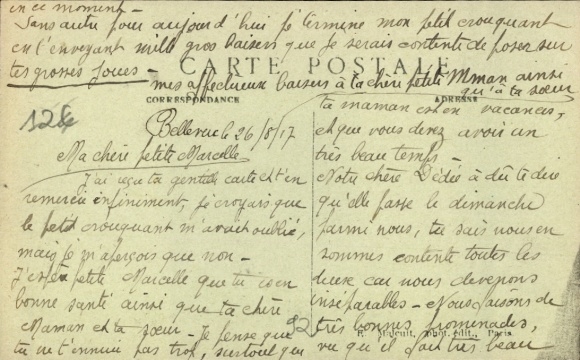 en ce moment -
Sans autre pour aujourd'hui je termine mon petit crouquant
en t'envoyant mille gros baisers que je serais contente de poser sur
tes grosses joues -
CARTE POSTALE
mes affectueux baisers à ta chère petite Mman ainsi
qu'à ta sœur
CORRESPONDANCE
128
Bellevue le 26/8/17
Ma chère petite Marcelle
J'ai reçu ta gentille carte et t'en
remercie infiniment, je croyais que
le petit crouquant m'avait oublié,
mais je m'aperçois que non -
petite Marcelle que tu es en
bonne santé ainsi que ta chère
Maman et ta sœur - Je pense que
tu ne t'ennuie pas trop, surtout que
ADRESSE
ta maman est en vacances,
et que vous devez avoir un
très beau temps -
Notre chère Dédée a dû te dire
qu'elle passe le dimanche
parmi nous, tu sais nous en
sommes contente toutes les
deux car nous devenons
inséparables - Nous faisons de
très bonnes promenades,
vu qu'il fait très beau
92
édit., Paris